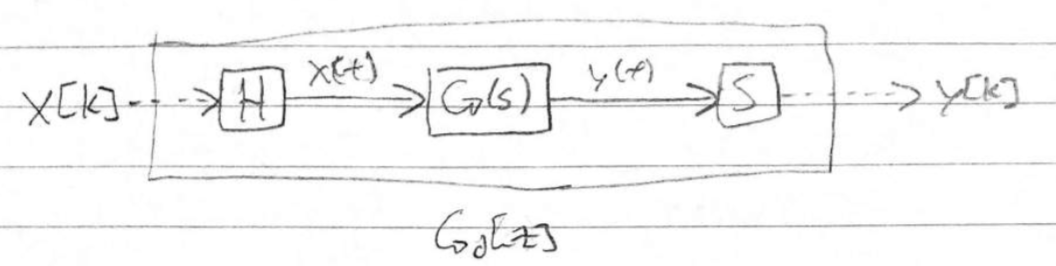 x[k] H x(t) G(s) y(t) S y[k]
G_d[z]